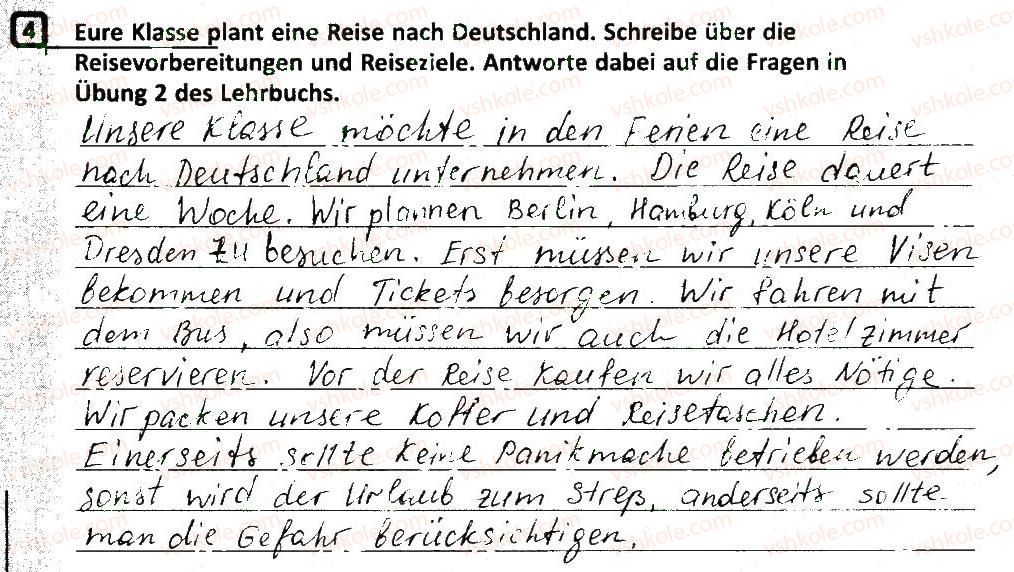 4 Eure Klasse plant eine Reise nach Deutschland. Schreibe über die
Reisevorbereitungen und Reiseziele. Antworte dabei auf die Fragen in
Übung 2 des Lehrbuchs.
Unsere Klasse möchte in den Ferien eine Reise
nach Deutschland unternehmen. Die Reise dauert
eine Woche. Wir plannen Berlin, Hamburg, Köln und
Dresden zu besuchen. Erst müssen wir unsere Visen
bekommen und Tickets besorgen. Wir fahren mit
dem Bus, also müssen wir auch die Hotelzimmer
reservieren. Vor der Reise kaufen wir alles Nötige.
Wir packen unsere Koffer und Reisetaschen.
Einerseits sollte keine Panikmache betrieben werden,
sonst wird der Urlaub zum Streß, anderseits sollte
man die Gefahr berücksichtigen.